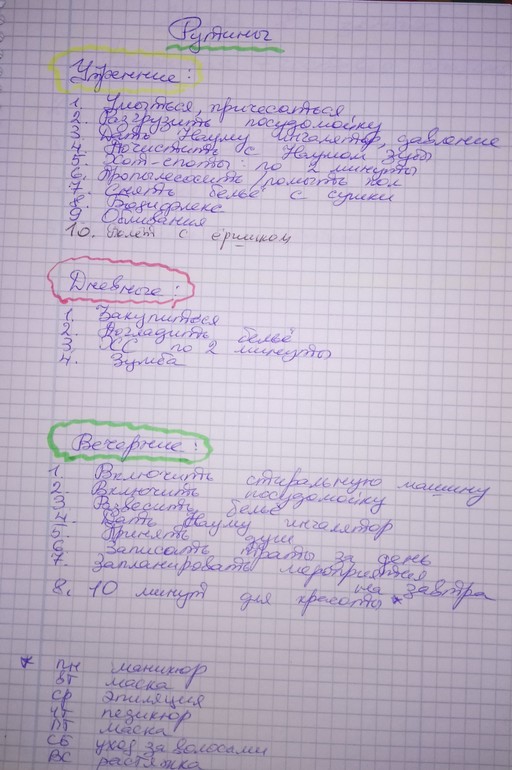 Рутины
Утренние:
1. Умыться, причесаться
2. Разгрузить посудомойку
3. Дать Науму ингалятор, давление
4. Почистить с Наумом зубы
5. Хот-споты: по 2 минуты
6. Пропылесосить, помыть пол
7. Снять бельё с сушки
8.
9. Обливания
10. туалет с ёршиком
Дневные:
1. Закупиться
2. Погладить бельё
3. ХС по 2 минуты
4. Зумба
Вечерние:
1. Включить стиральную машину
2 Включить посудомойку
3 Развесить бельё
4. Дать Науму ингалятор
5. Принять душ
6 Записать траты за день
7. Запланировать мероприятия
на завтра
8. 10 минут для красоты *
* ПН маникюр
ВТ маска
СР эпиляция
ЧТ педикюр
ПТ маска
СБ уход за волосами
ВС растяжка